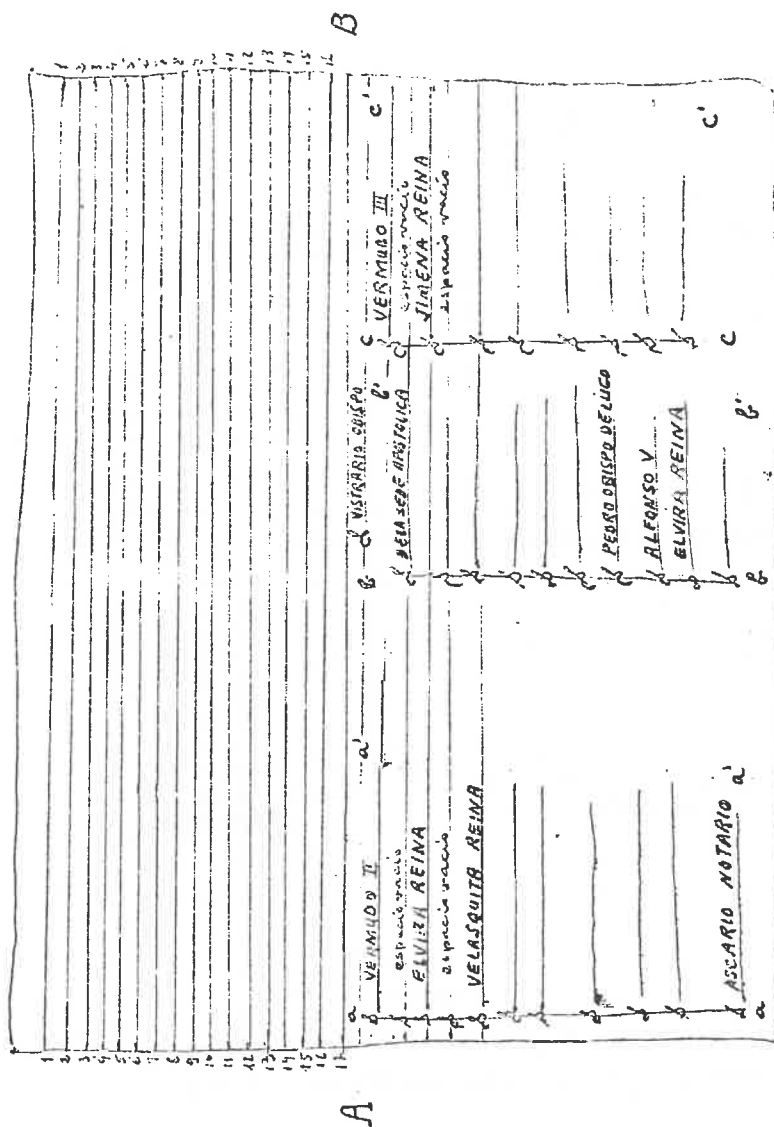 A
B
1
2
3
4
5
6
7
8
9
10
11
12
13
14
15
16
17
a
a'
VERMUDO II
espacio vacio
ELVIRA REINA
espacio vacio
VELASQUITA REINA
ASCARIO NOTARIO
a
a'
b
VISTRARIO OBISPO
b'
DE LA SEDE APOSTOLICA
PEDRO OBISPO DE LUGO
ALFONSO V
ELVIRA REINA
b
b'
c
c'
VERMUDO III
espacio vacio
JIMENA REINA
espacio vacio
c
c'